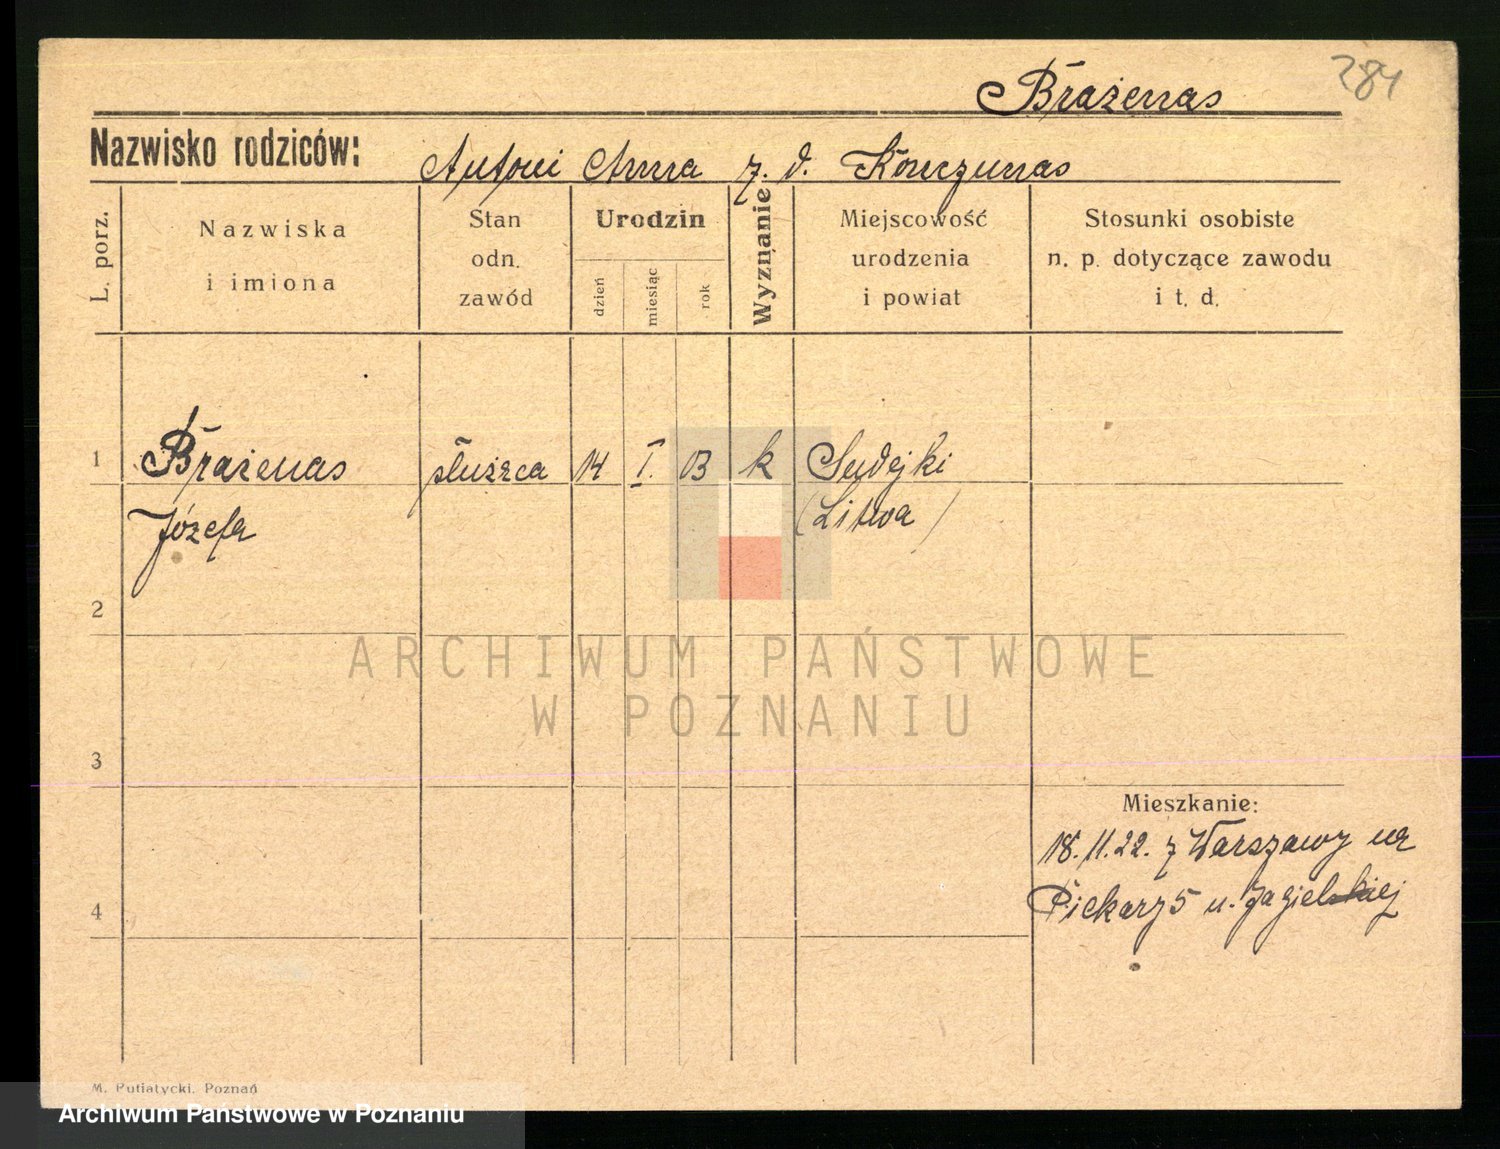 Brażenas
284
Nazwisko rodziców: Antoni Anna z. d. Konczunas
L. porz.
Nazwiska
i imiona
Stan
odn.
zawód
Urodzin
dzień
miesiąc
rok
Wyznanie
Miejscowość
urodzenia
i powiat
Stosunki osobiste
n. p. dotyczące zawodu
i t. d.
1 Brażenas służąca 14 I. 03 k Sudejki
Józefa (Litwa)
2
ARCHIWUM PAŃSTWOWE
W POZNANIU
3
Mieszkanie:
18. 11. 22. z Warszawy na
Piekary 5 u. Jagielskiej
4
M. Putiatycki. Poznań
Archiwum Państwowe w Poznaniu